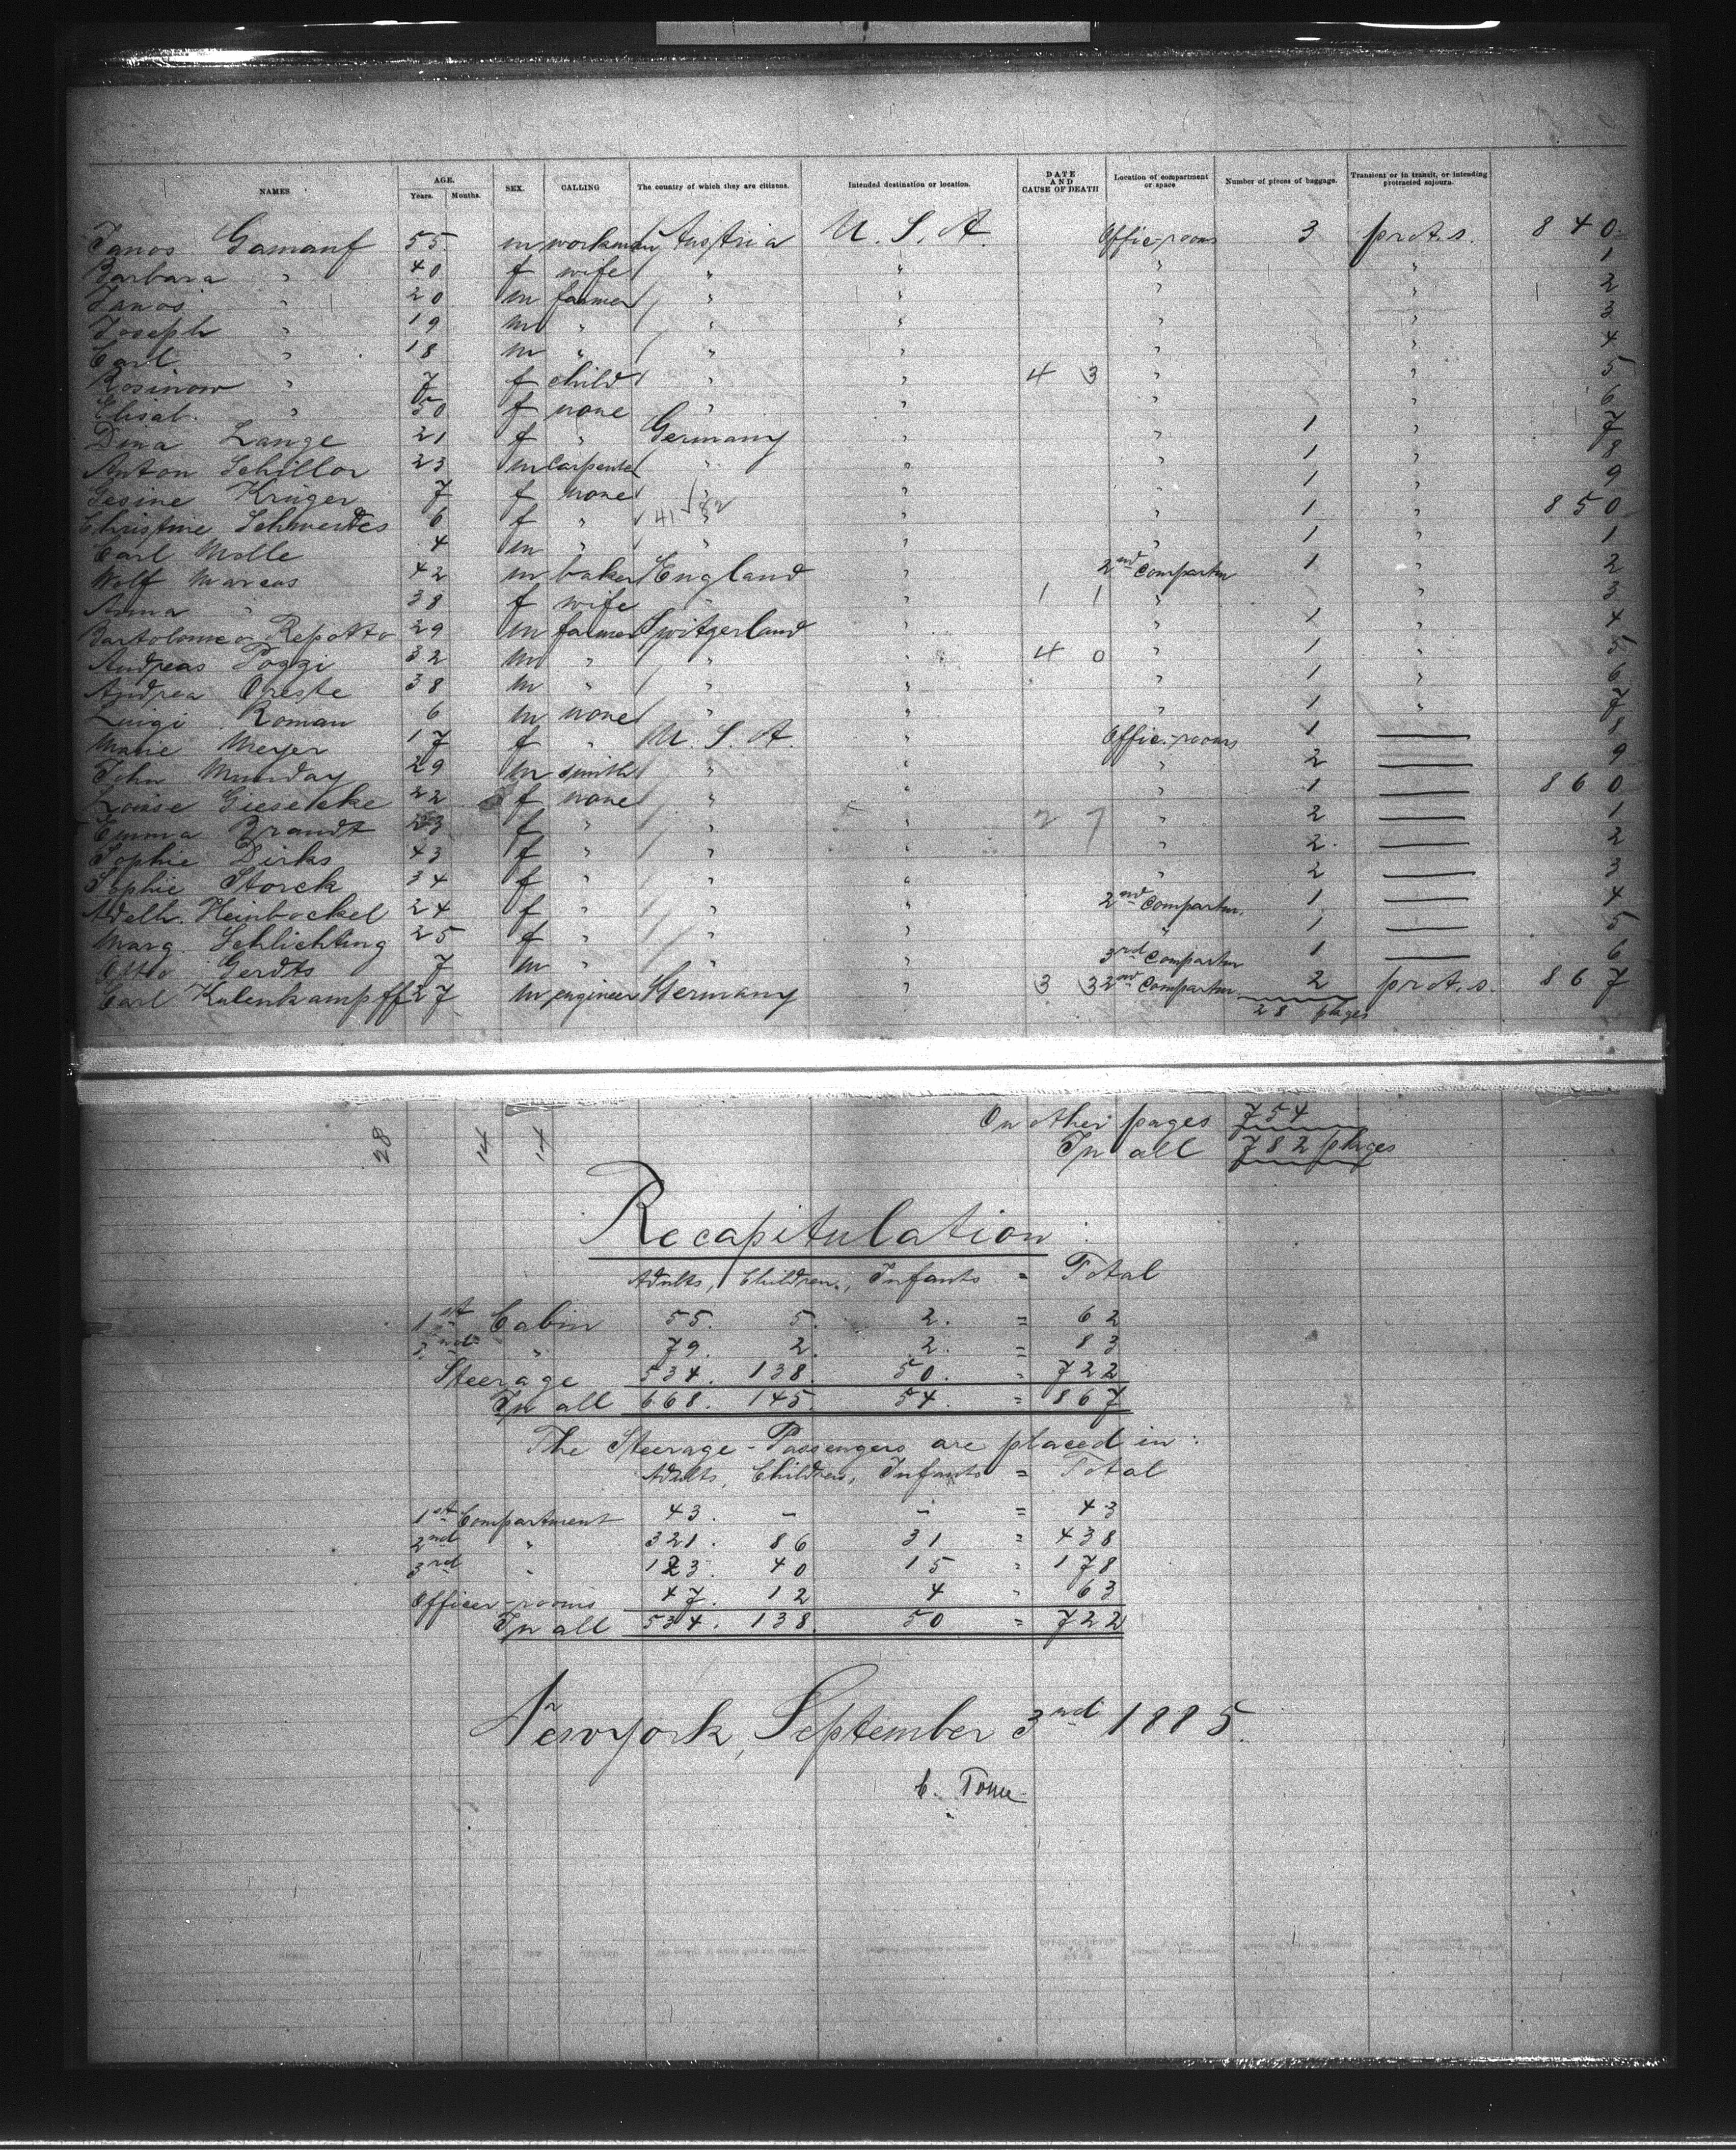 NAMES AGE. Years. Months. SEX. CALLING The country of which they are citizens. Intended destination or location. DATE AND CAUSE OF DEATH Location of compartment or space Number of pieces of baggage. Transient or in transit, or intending protracted sojourn.
Janos Gamauf 55 m workman Austria U. S. A. Offic-rooms 3 prot. s. 840
Barbara " 40 f wife " " " " 1
Janos " 20 m farmer " " " " 2
Joseph " 19 m " " " " " 3
Carl " 18 m " " " " " 4
Rosinow " 7 f child " " 4 3 " " 5
Elisab. " 50 f none " " " " 6
Dina Lange 21 f " Germany " " 1 " 7
Anton Schillor 23 m carpenter " " " 1 " 8
Gesine Krüger 7 f none " " " 1 " 9
Christine Schwerdtes 6 f " 41 82 " " " 1 " 850
Carl Molle 4 m " " " " 1 " 1
Wolf Marcus 42 m baker England " 2nd Compartm 1 " 2
Anna " 38 f wife " " 1 1 " " 3
Bartolomeo Repotto 29 m farmer Switzerland " " 1 " 4
Andreas Poggi 32 m " " " 4 0 " 1 " 5
Andrea Oreste 38 m " " " " 1 " 6
Luigi Roman 6 m none " " " 1 " 7
Marie Meyer 17 f " U. S. A. " Offic-rooms 1 — 8
John Munday 29 m smith " " " 2 — 9
Louise Giesecke 22 f none " " " 1 — 860
Emma Brandt 23 f " " " 2 7 " 2 — 1
Sophie Dirks 43 f " " " " 2. — 2
Sophie Storck 34 f " " " " 2 — 3
Adelh. Heinbockel 24 f " " " 2nd Compartm. 1 — 4
Marg. Schlichting 25 f " " " " 1 — 5
Otto Gerdts 7 m " " " 3rd Compartm 1 — 6
Carl Kulenkampff 27 m engineer Germany " 3 3 2nd Compartm 2 prot. s. 867
28 pkges
28 14 14
On other pages 754
In all 782 pkges
Recapitulation
Adults, Children, Infants = Total
1st Cabin 55. 5. 2. = 62
2nd " 79. 2. 2. = 83
Steerage 534. 138. 50. " 722
In all 668. 145. 54. = 867
The Steerage-Passengers are placed in:
Adults, Children, Infants = Total
1st Compartment 43. – – = 43
2nd " 321. 86 31 " 438
3rd " 123. 40 15 " 178
Officer-rooms 47. 12 4 " 63
In all 534. 138. 50 = 722
Newyork, September 3rd 1885.